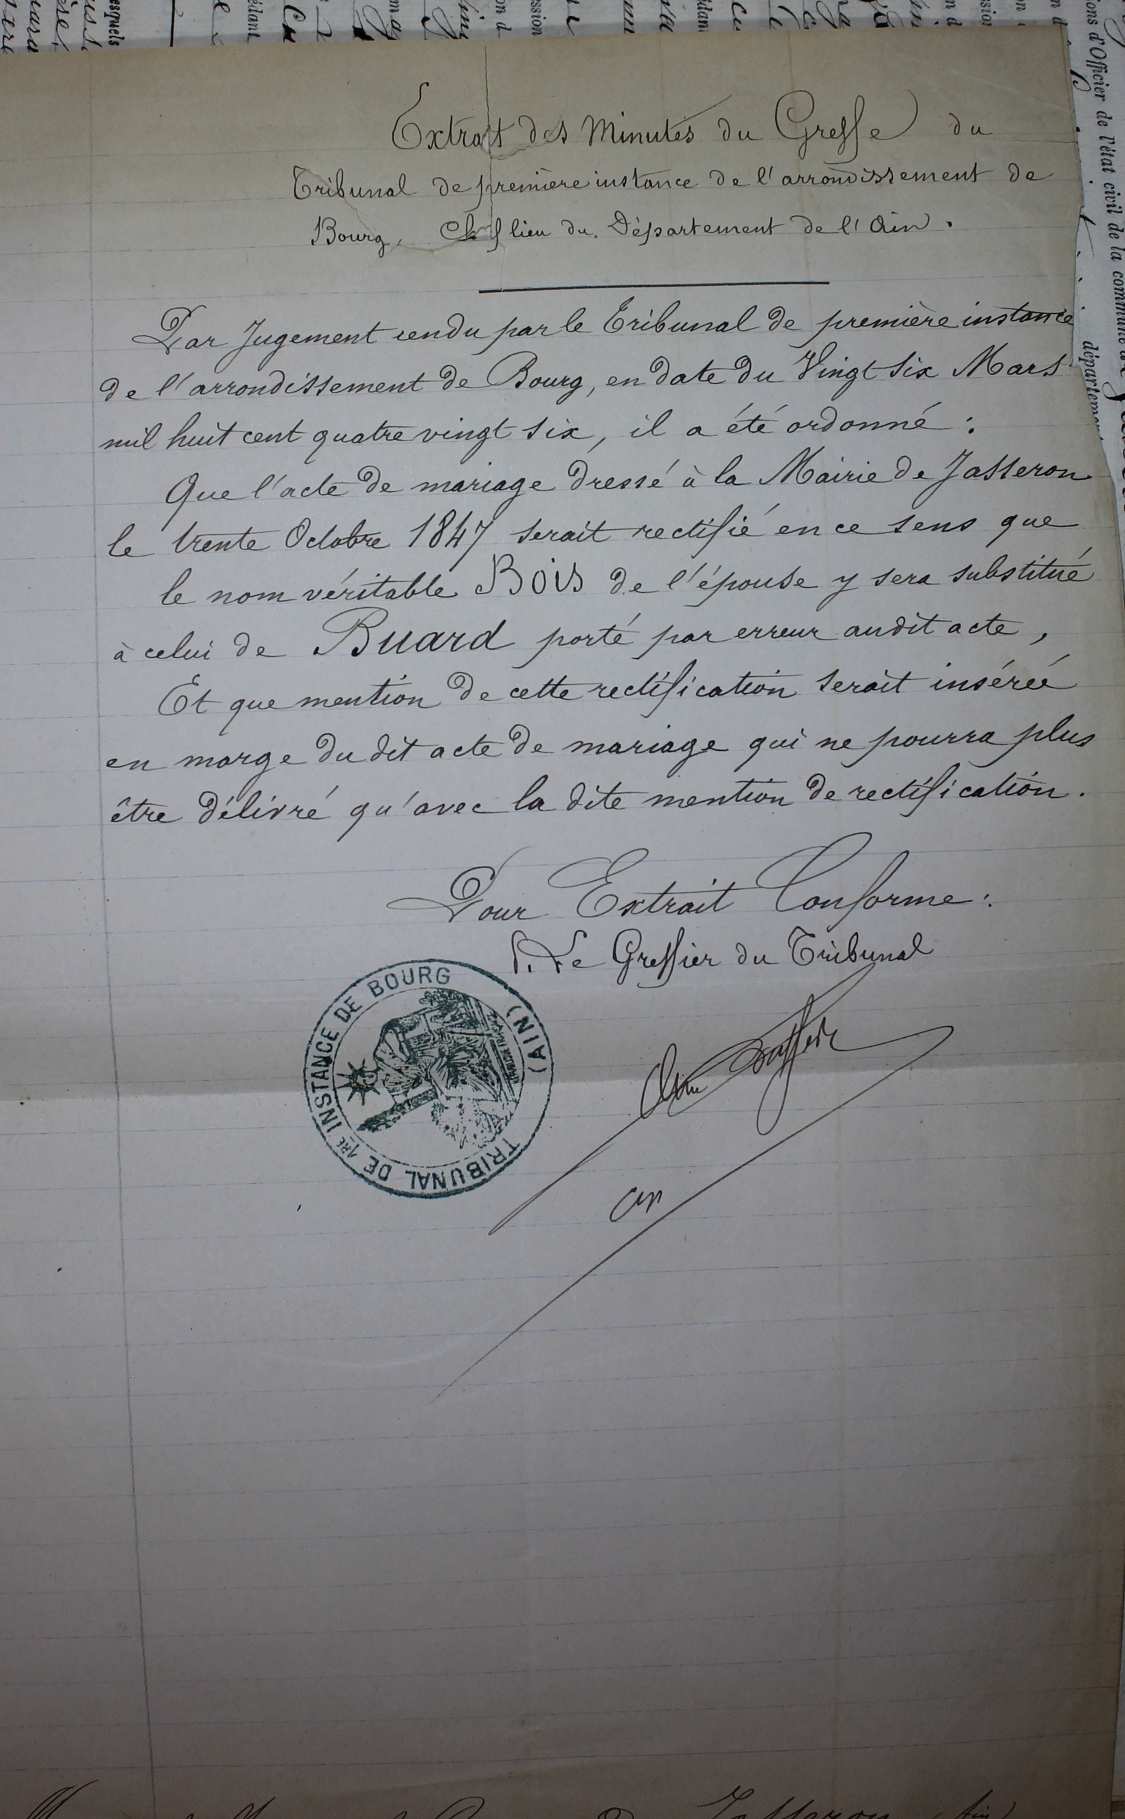 Extrait des Minutes du Greffe du
Tribunal de première instance de l'arrondissement de
Bourg, Chef lieu du Département de l'Ain.
Par Jugement rendu par le Tribunal de première instance
de l'arrondissement de Bourg, en date du Vingt Six Mars
mil huit cent quatre vingt six, il a été ordonné :
Que l'acte de mariage dressé à la Mairie de Jasseron
le trente Octobre 1847 serait rectifié en ce sens que
le nom véritable Bois de l'épouse y sera substitué
à celui de Buard porté par erreur audit acte,
Et que mention de cette rectification serait insérée
en marge du dit acte de mariage qui ne pourra plus
être délivré qu'avec la dite mention de rectification.
Pour Extrait Conforme :
P. Le Greffier du Tribunal
TRIBUNAL DE 1RE INSTANCE DE BOURG (AIN)
ions d'Officier de l'état civil de la commune
département
esquels
Jasseron